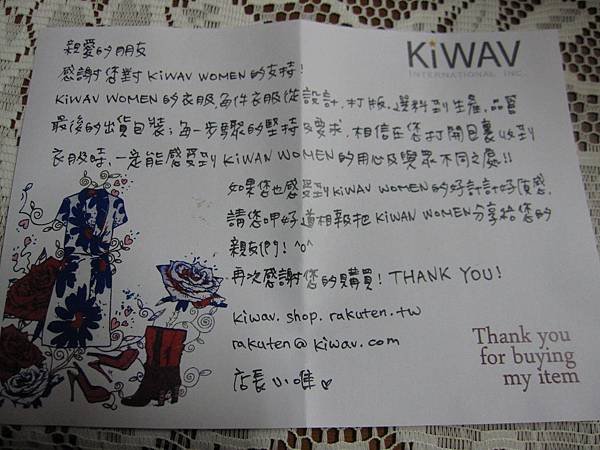 KiWAV
INTERNATIONAL INC.
親愛的朋友
感謝您對KiWAV WOMEN的支持!
KiWAV WOMEN的衣服,每件衣服從設計,打版,選料到生產,品質
最後的出貨包裝;每一步驟的堅持及要求,相信在您打開包裹收到
衣服時,一定能感受到KiWAN WOMEN的用心及與眾不同之處!!
如果您也感受到KiWAV WOMEN的好設計好質感,
請您呷好道相報把KiWAN WOMEN分享給您的
親友們! ^o^
再次感謝您的購買! THANK YOU!
kiwav.shop.rakuten.tw
rakuten@kiwav.com
店長小唯♡
Thank you
for buying
my item